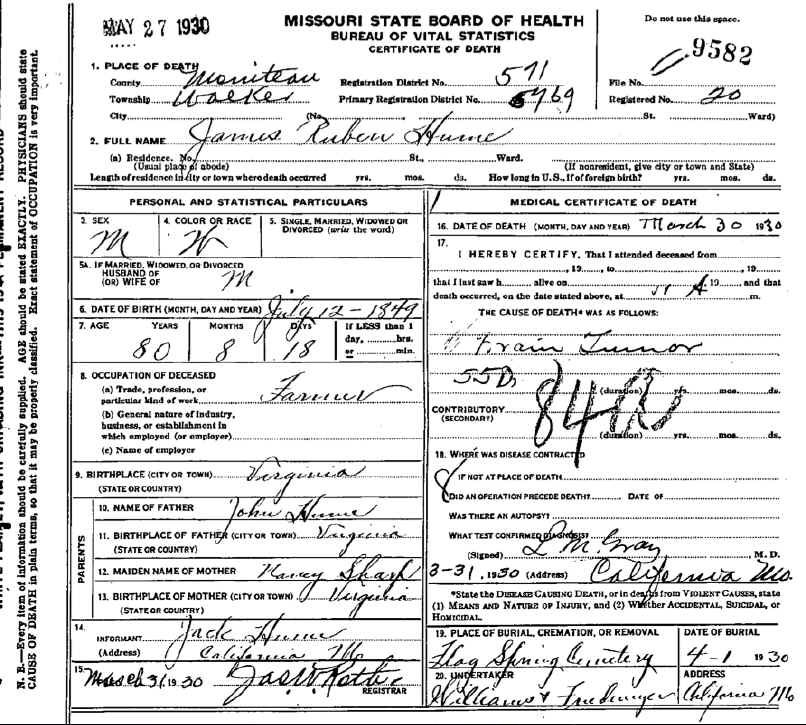 MAY 27 1930
MISSOURI STATE BOARD OF HEALTH
BUREAU OF VITAL STATISTICS
CERTIFICATE OF DEATH
Do not use this space.
9582
1. PLACE OF DEATH
County Moniteau
Township Walker
City (No. St. Ward)
Registration District No. 571
Primary Registration District No. 5769
File No.
Registered No. 20
2. FULL NAME James Ruben Hume
(a) Residence. No. St., Ward.
(Usual place of abode) (If nonresident, give city or town and State)
Length of residence in city or town where death occurred yrs. mos. ds. How long in U.S., if of foreign birth? yrs. mos. ds.
PERSONAL AND STATISTICAL PARTICULARS
3. SEX M
4. COLOR OR RACE W
5. SINGLE, MARRIED, WIDOWED OR DIVORCED (write the word)
5A. IF MARRIED, WIDOWED, OR DIVORCED
HUSBAND OF
(OR) WIFE OF M
6. DATE OF BIRTH (MONTH, DAY AND YEAR) July 12-1849
7. AGE YEARS MONTHS DAYS If LESS than 1
day, hrs.
or min.
80 8 18
8. OCCUPATION OF DECEASED
(a) Trade, profession, or
particular kind of work Farmer
(b) General nature of industry,
business, or establishment in
which employed (or employer)
(c) Name of employer
9. BIRTHPLACE (CITY OR TOWN) Virginia
(STATE OR COUNTRY)
PARENTS
10. NAME OF FATHER John Hume
11. BIRTHPLACE OF FATHER (CITY OR TOWN) Virginia
(STATE OR COUNTRY)
12. MAIDEN NAME OF MOTHER Nancy Sharp
13. BIRTHPLACE OF MOTHER (CITY OR TOWN) Virginia
(STATE OR COUNTRY)
14.
INFORMANT Jack Hume
(Address) California Mo
15. March 31 1930
REGISTRAR
MEDICAL CERTIFICATE OF DEATH
16. DATE OF DEATH (MONTH, DAY AND YEAR) March 30 1930
17.
I HEREBY CERTIFY, That I attended deceased from
, 19 , to , 19
that I last saw h alive on , 19 , and that
death occurred, on the date stated above, at m.
THE CAUSE OF DEATH* WAS AS FOLLOWS:
Brain Tumor
(duration) yrs. mos. ds.
CONTRIBUTORY
(SECONDARY)
(duration) yrs. mos. ds.
18. WHERE WAS DISEASE CONTRACTED
IF NOT AT PLACE OF DEATH
DID AN OPERATION PRECEDE DEATH? DATE OF
WAS THERE AN AUTOPSY?
WHAT TEST CONFIRMED DIAGNOSIS?
(Signed) L M Gray, M. D.
3-31, 1930 (Address) California Mo.
*State the DISEASE CAUSING DEATH, or in deaths from VIOLENT CAUSES, state
(1) MEANS AND NATURE OF INJURY, and (2) Whether ACCIDENTAL, SUICIDAL, or
HOMICIDAL.
19. PLACE OF BURIAL, CREMATION, OR REMOVAL
Flag Spring Cemetery
DATE OF BURIAL
4-1 1930
20. UNDERTAKER
Williams &
ADDRESS
California Mo
N. B.—Every item of information should be carefully supplied. AGE should be stated EXACTLY. PHYSICIANS should state
CAUSE OF DEATH in plain terms, so that it may be properly classified. Exact statement of OCCUPATION is very important.